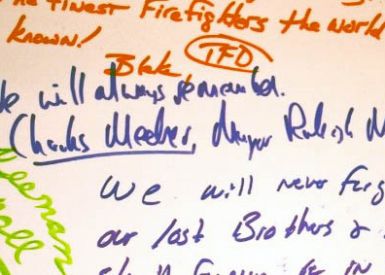 the finest Firefighters the world
known!
Blake, TFD
We will always remember.
Charles Meeker, Mayor Raleigh N
We will never forg
our lost Brothers &
in